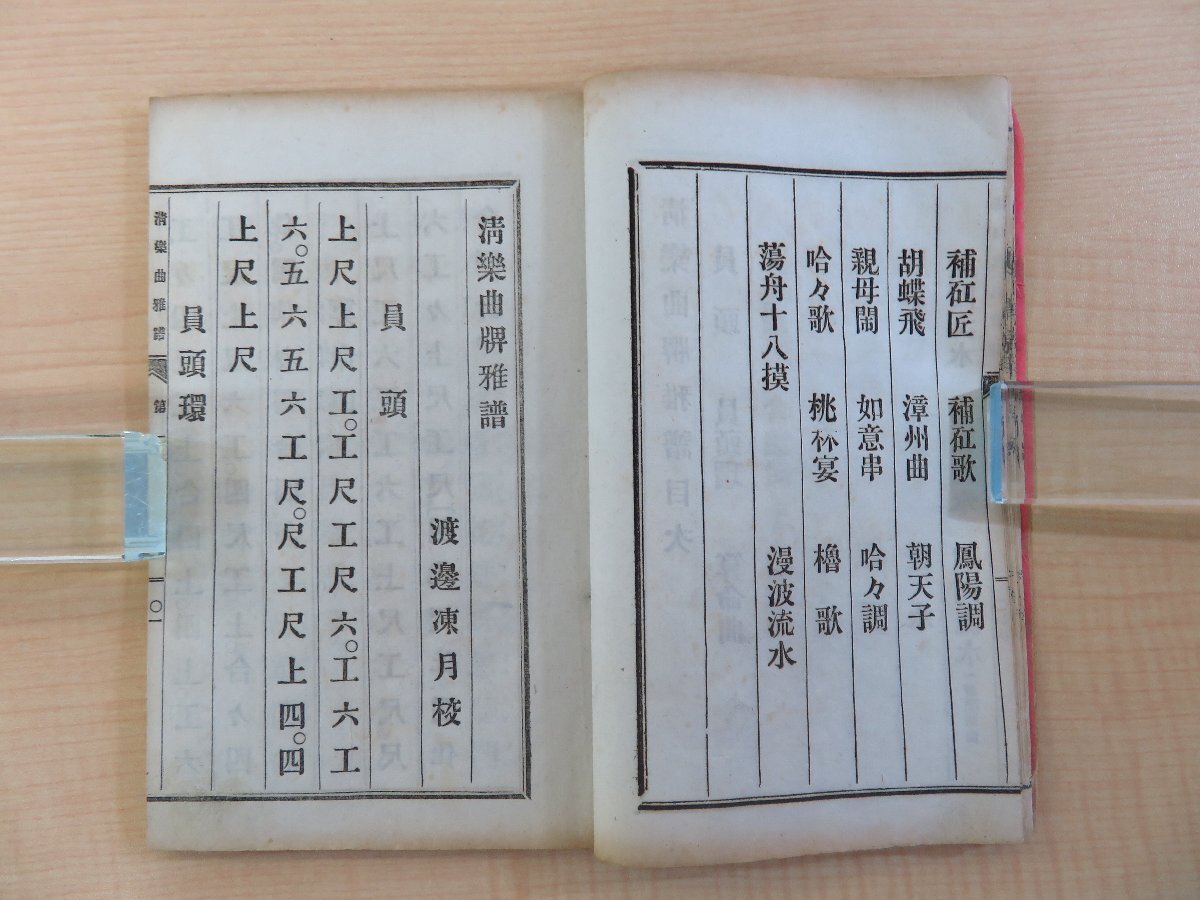 補矼匠 補矼歌 鳳陽調
胡蝶飛 漳州曲 朝天子
親母閙 如意串 哈々調
哈々歌 桃林宴 櫓歌
蕩舟十八摸 漫波流水
淸樂曲牌雅譜
渡邊凍月校
員頭
上尺上尺工。工尺工尺六。工六工
六。五六五六工尺。尺工尺上四。四
上尺上尺
員頭環
淸樂曲雅譜 第 〇一